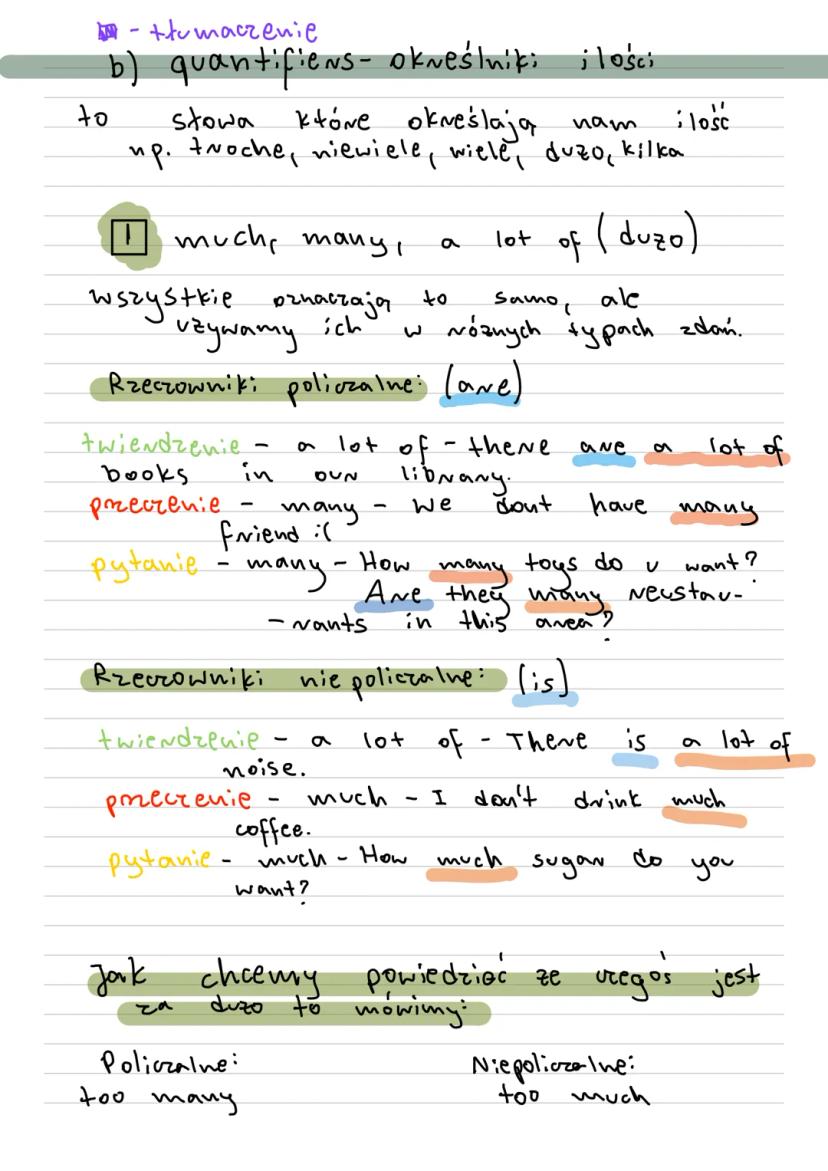 - tłumaczenie
b) quantifiers - określniki ilości
to słowa które określają nam ilość
np. troche, niewiele, wiele, dużo, kilka
1 much, many, a lot of (dużo)
wszystkie oznaczają to samo, ale
używamy ich w różnych typach zdań.
Rzeczowniki policzalne: (are)
twierdzenie - a lot of - there are a lot of
books in our library.
przeczenie - many - we dont have many
friend :(
pytanie - many - How many toys do u want?
Are they many reustau-
- rants in this area?
Rzeczowniki nie policzalne: (is)
twierdzenie - a lot of - There is a lot of
noise.
przeczenie - much - I don't drink much
coffee.
pytanie - much - How much sugar do you
want?
Jak chcemy powiedzieć ze czegoś jest
za dużo to mówimy:
Policzalne: Niepoliczalne:
too many too much